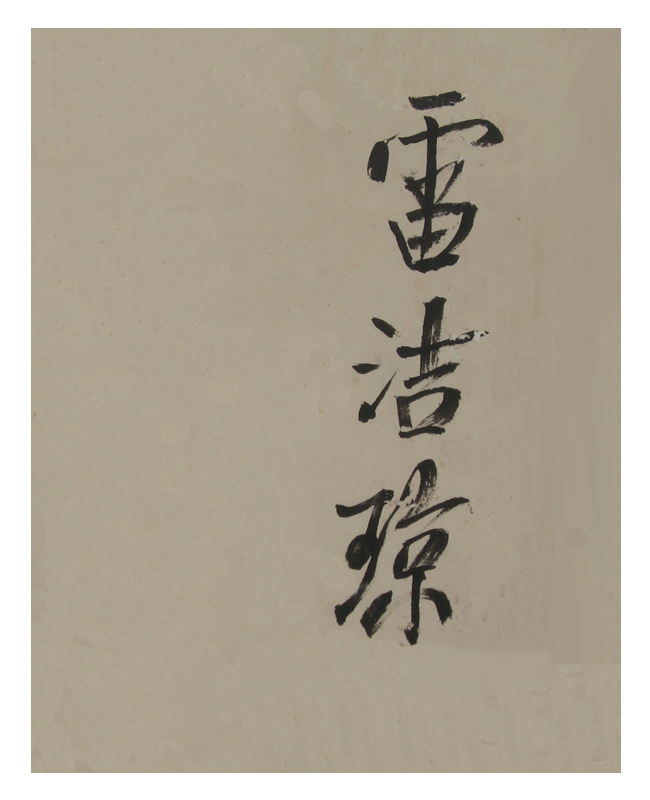 雷洁琼